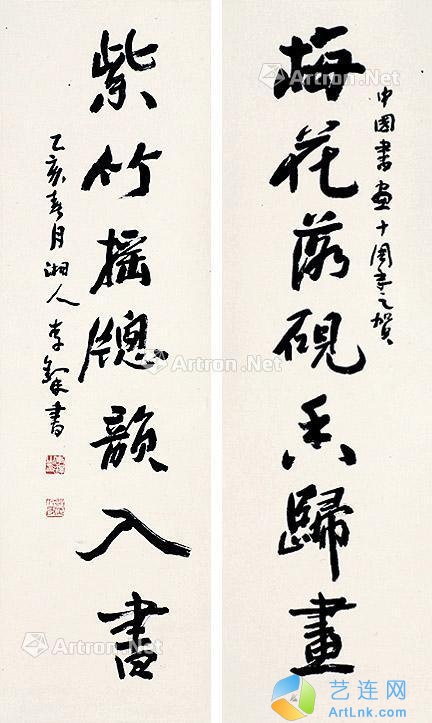 中國書畫十周年之賀
梅花落硯香歸畫
紫竹搖牕韻入書
乙亥春月湘人李鐸書
Artron.Net
Artron.Net
Artron.Net
Artron.Net
Artron.Net
Artron.Net
艺连网
ArtLnk.com